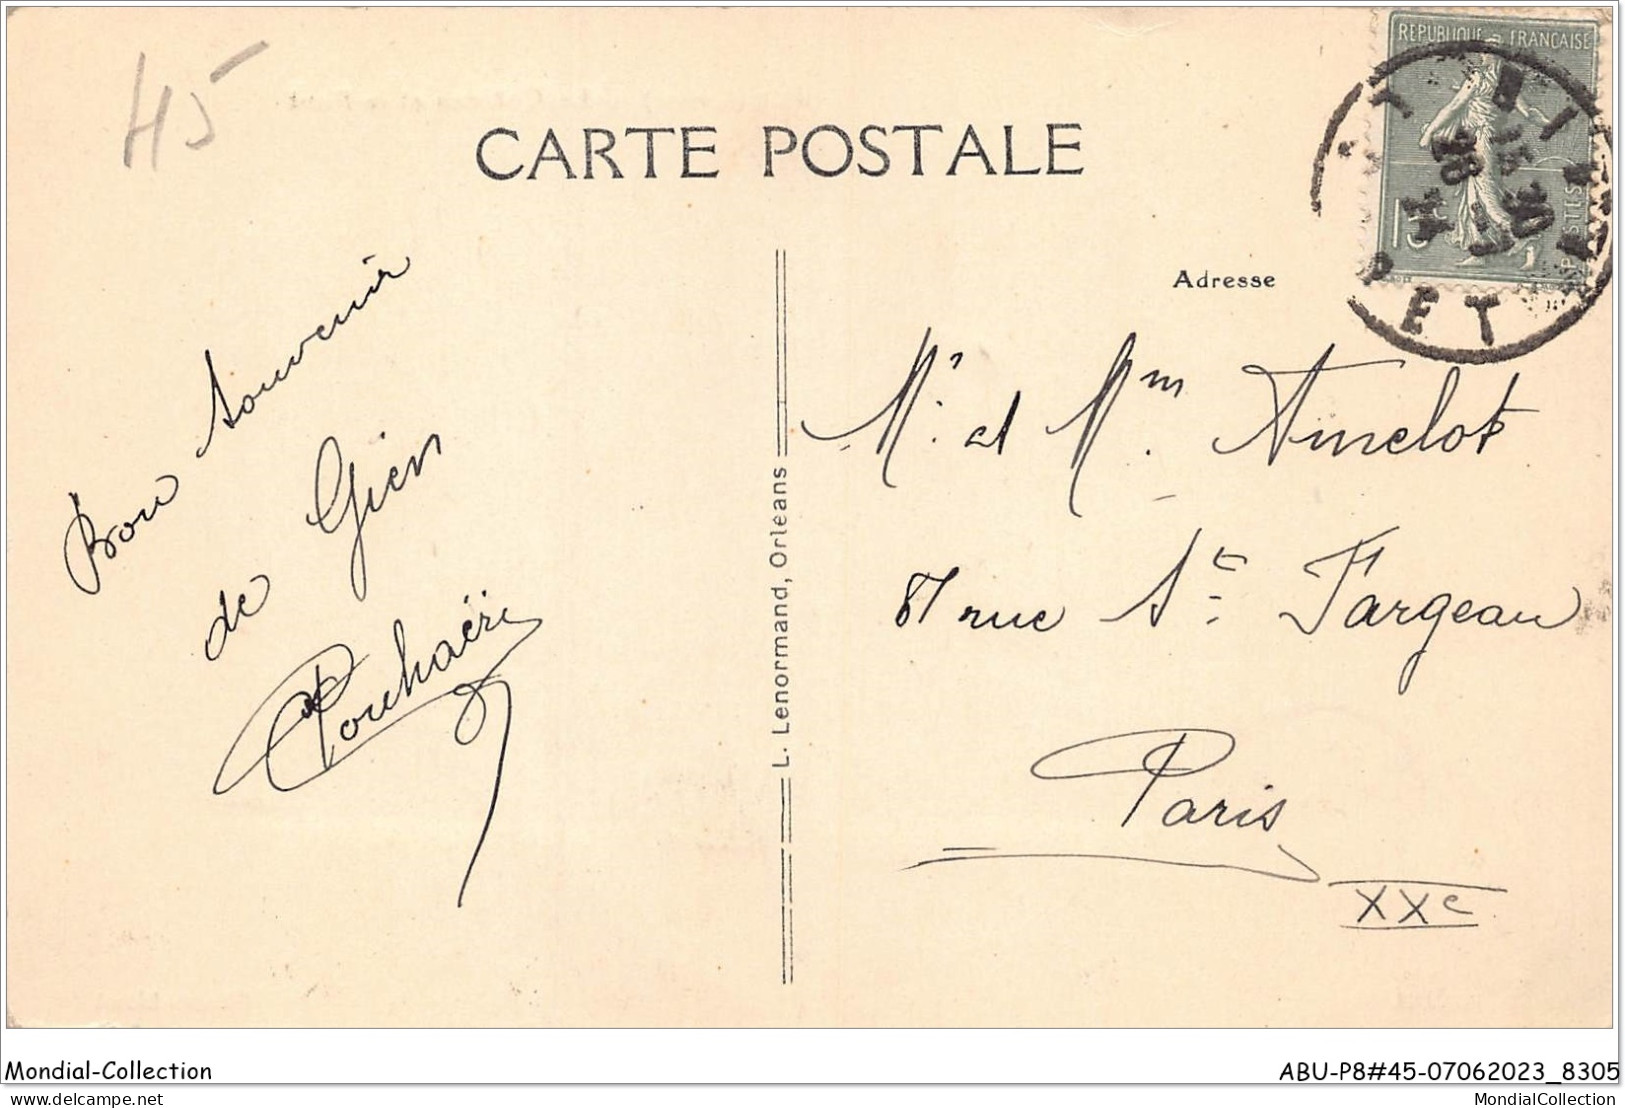 45
CARTE POSTALE
REPUBLIQUE FRANCAISE
15
POSTES
15 30
26
PET
Adresse
Bon souvenir
de Gien
L. Lenormand, Orléans
Mr. et Mm. Amelot
81 rue St. Fargeau
Paris
XXe
Mondial-Collection
ABU-P8#45-07062023_8305
delcampe.net
MondialCollection